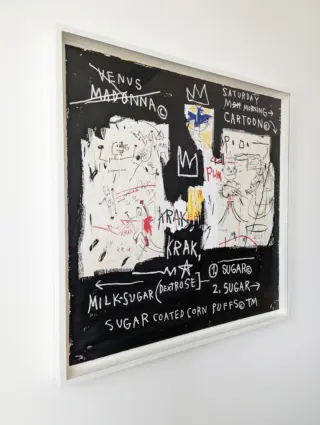 VENUS
MADONNA©
SATURDAY
MORNING→
CARTOON©
PUN
KRAK
KRAK,
MILK-SUGAR (DEXTROSE)
1. SUGAR©
2. SUGAR→
SUGAR COATED CORN PUFFS© TM